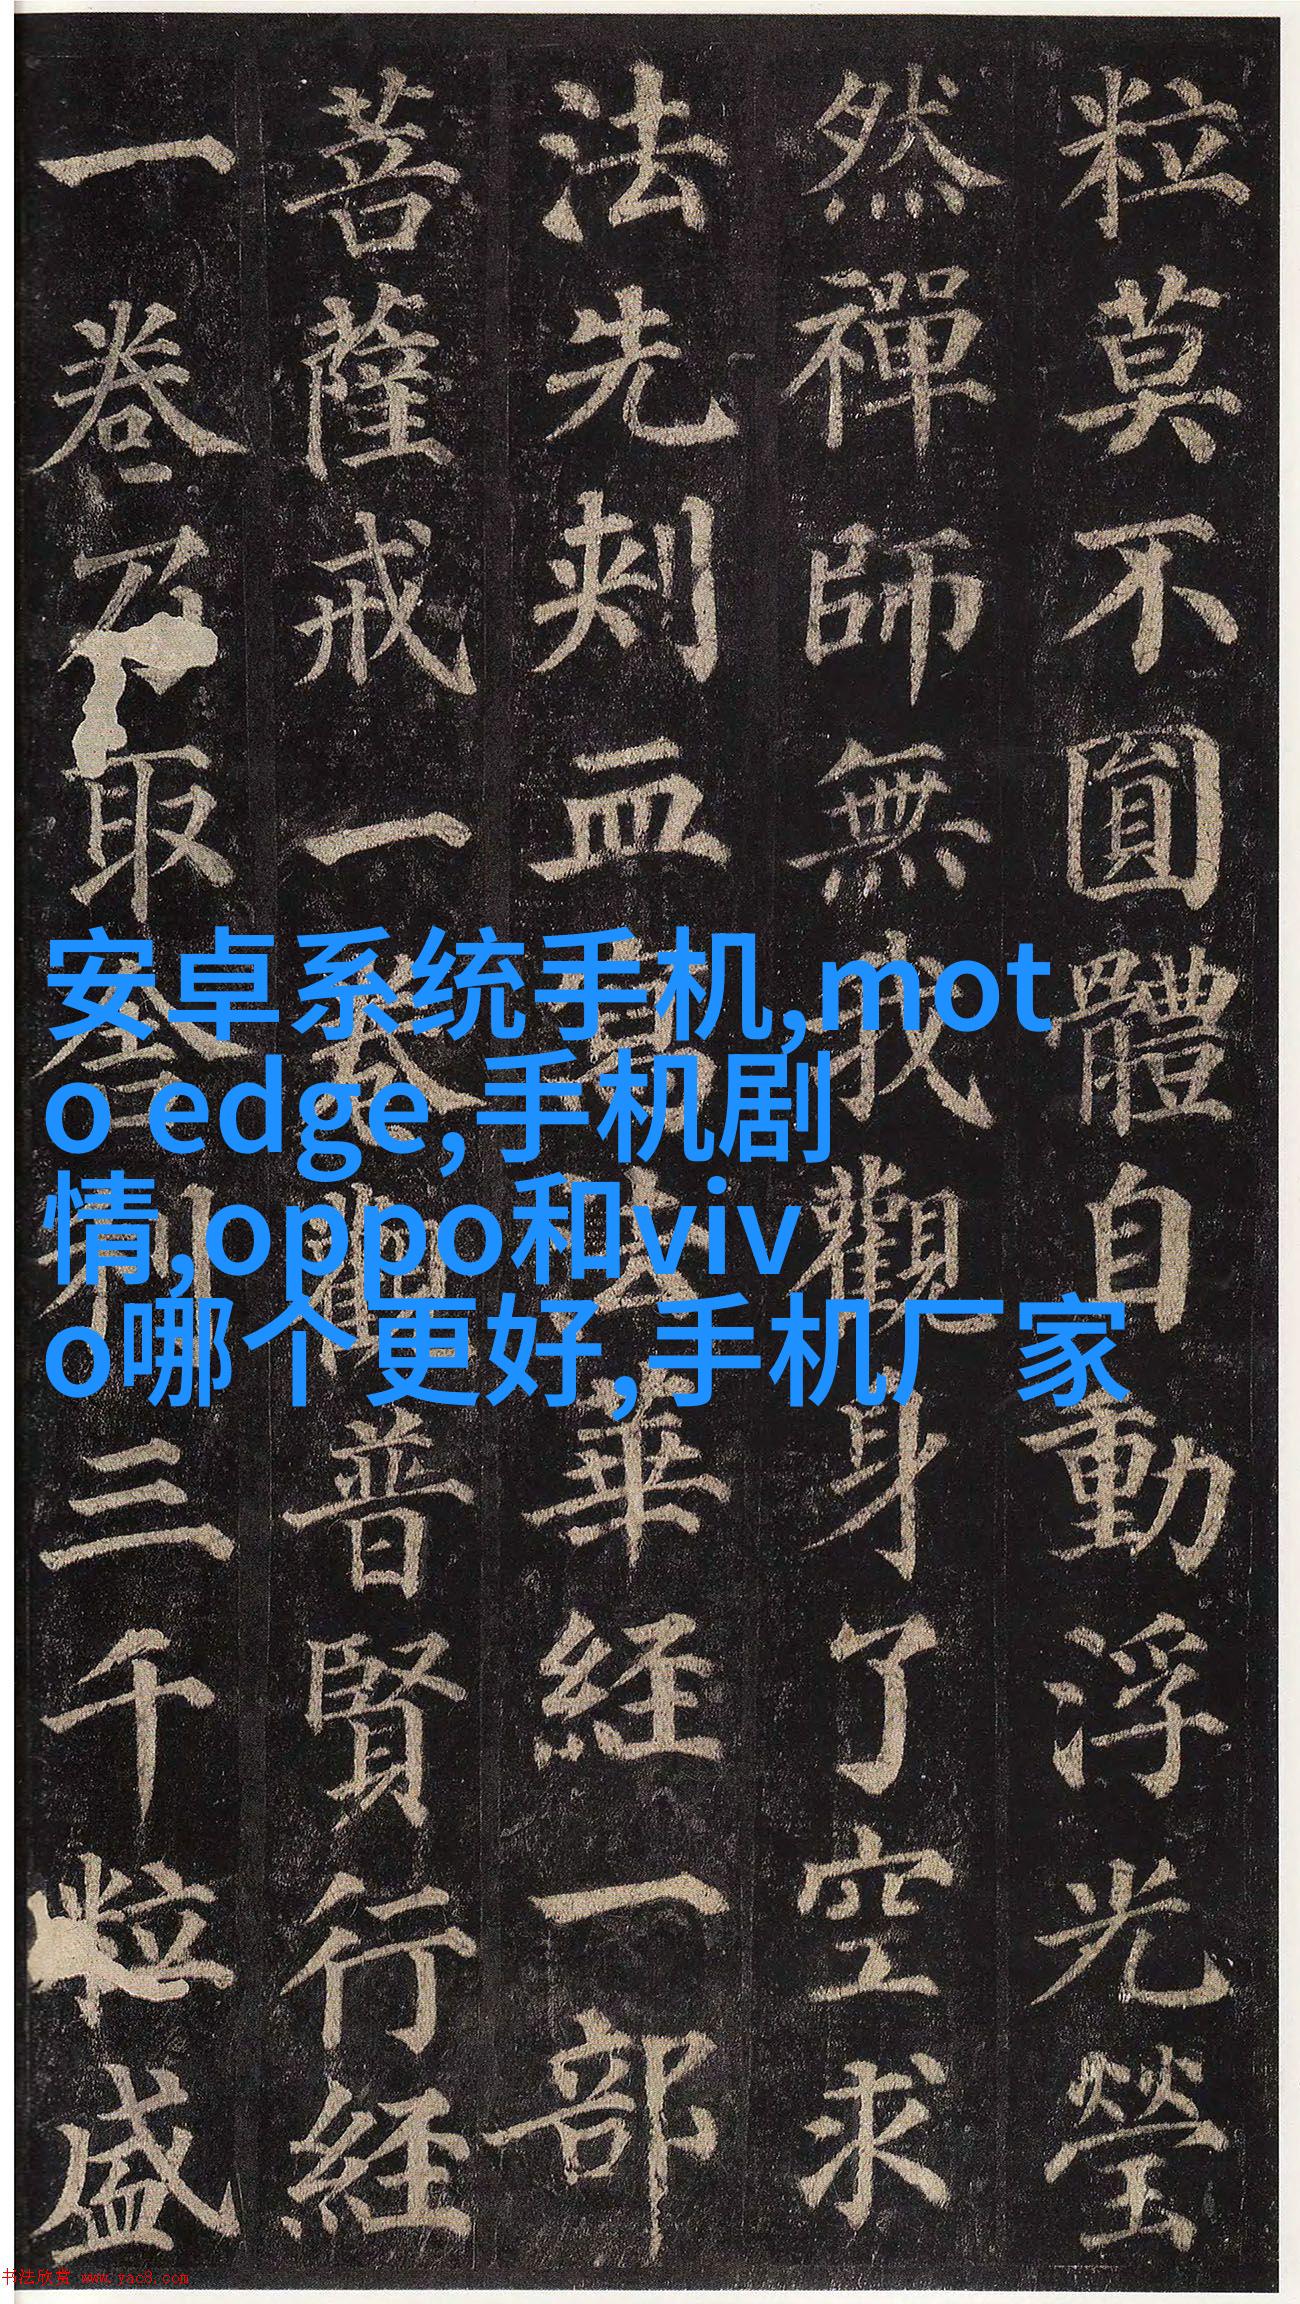 粒莫不圓體自動浮光瑩
然禪師無我觀身了空求
法先刺血寫法華経一部
菩薩戒一卷觀普賢行経
一卷乃取舍利三千粒盛
安卓系统手机,mot
o edge,手机剧
情,oppo和viv
o哪个更好,手机厂家
书法欣赏 www.yac8.com